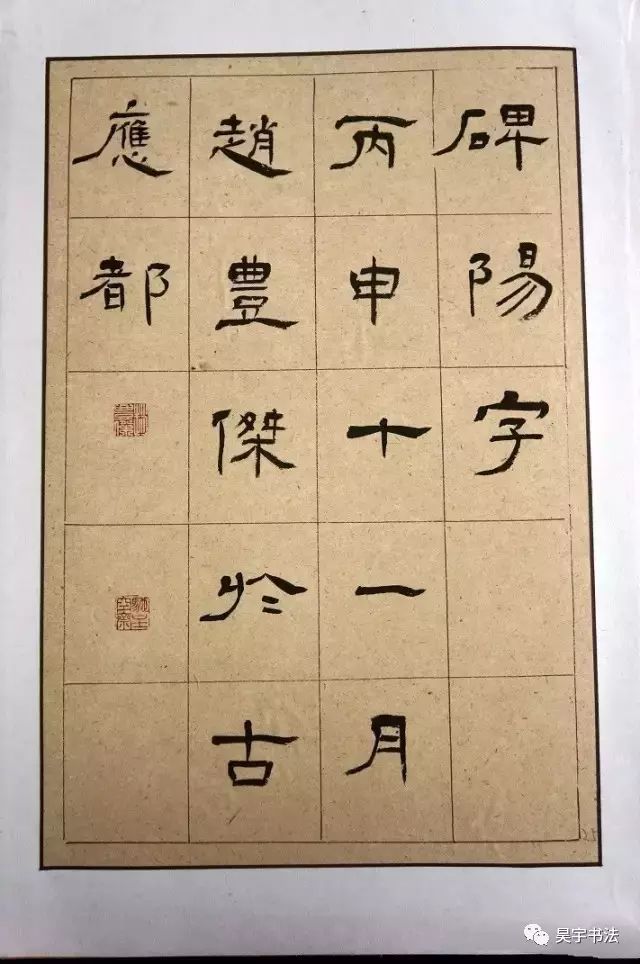 碑陽字
丙申十一月
趙豊傑於古
應都
昊宇书法